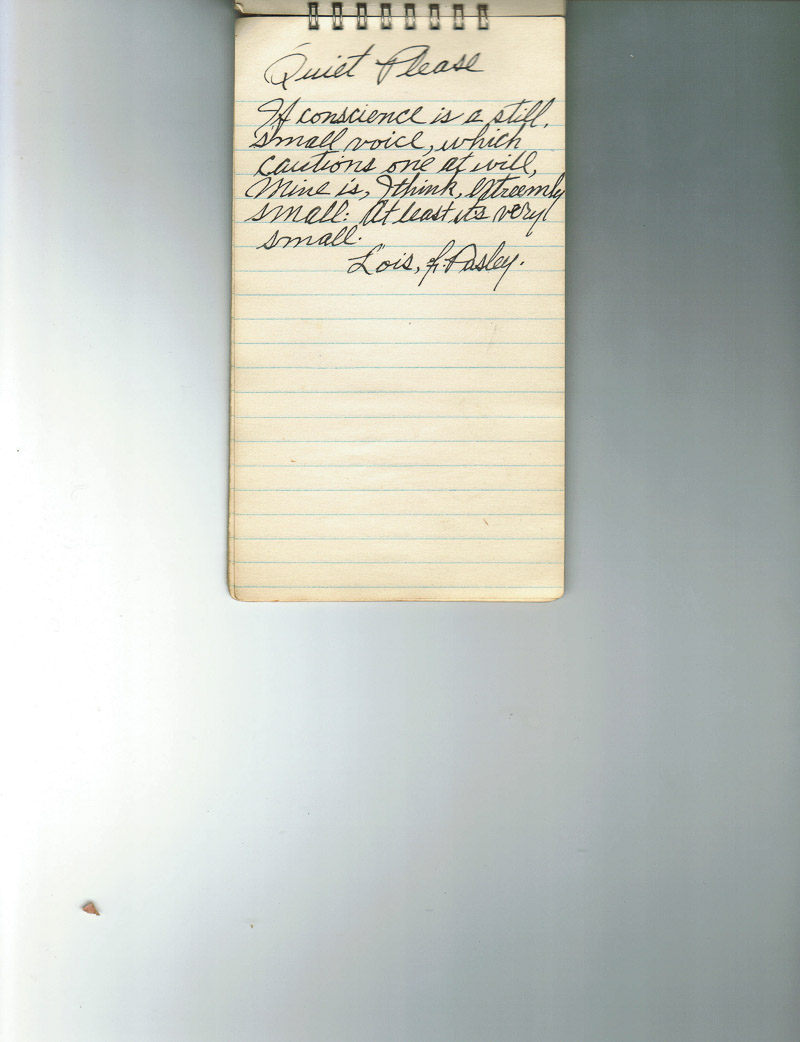 Quiet Please
If conscience is a still,
small voice, which
cautions one at will,
Mine is, I think, extreemly
small: At least its very
small.
Lois, L. Pasley.